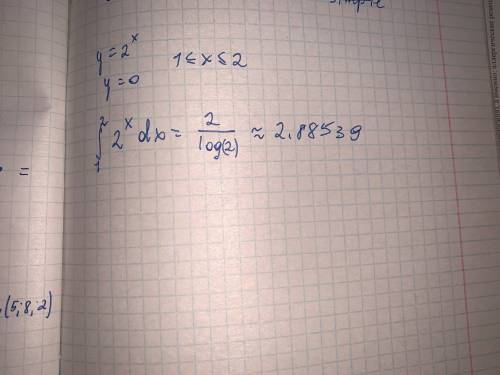 y = 2^x
y = 0
1 ≤ x ≤ 2
∫₁² 2^x dx = 2/log(2) ≈ 2.88539
=
(5; 8; 2)